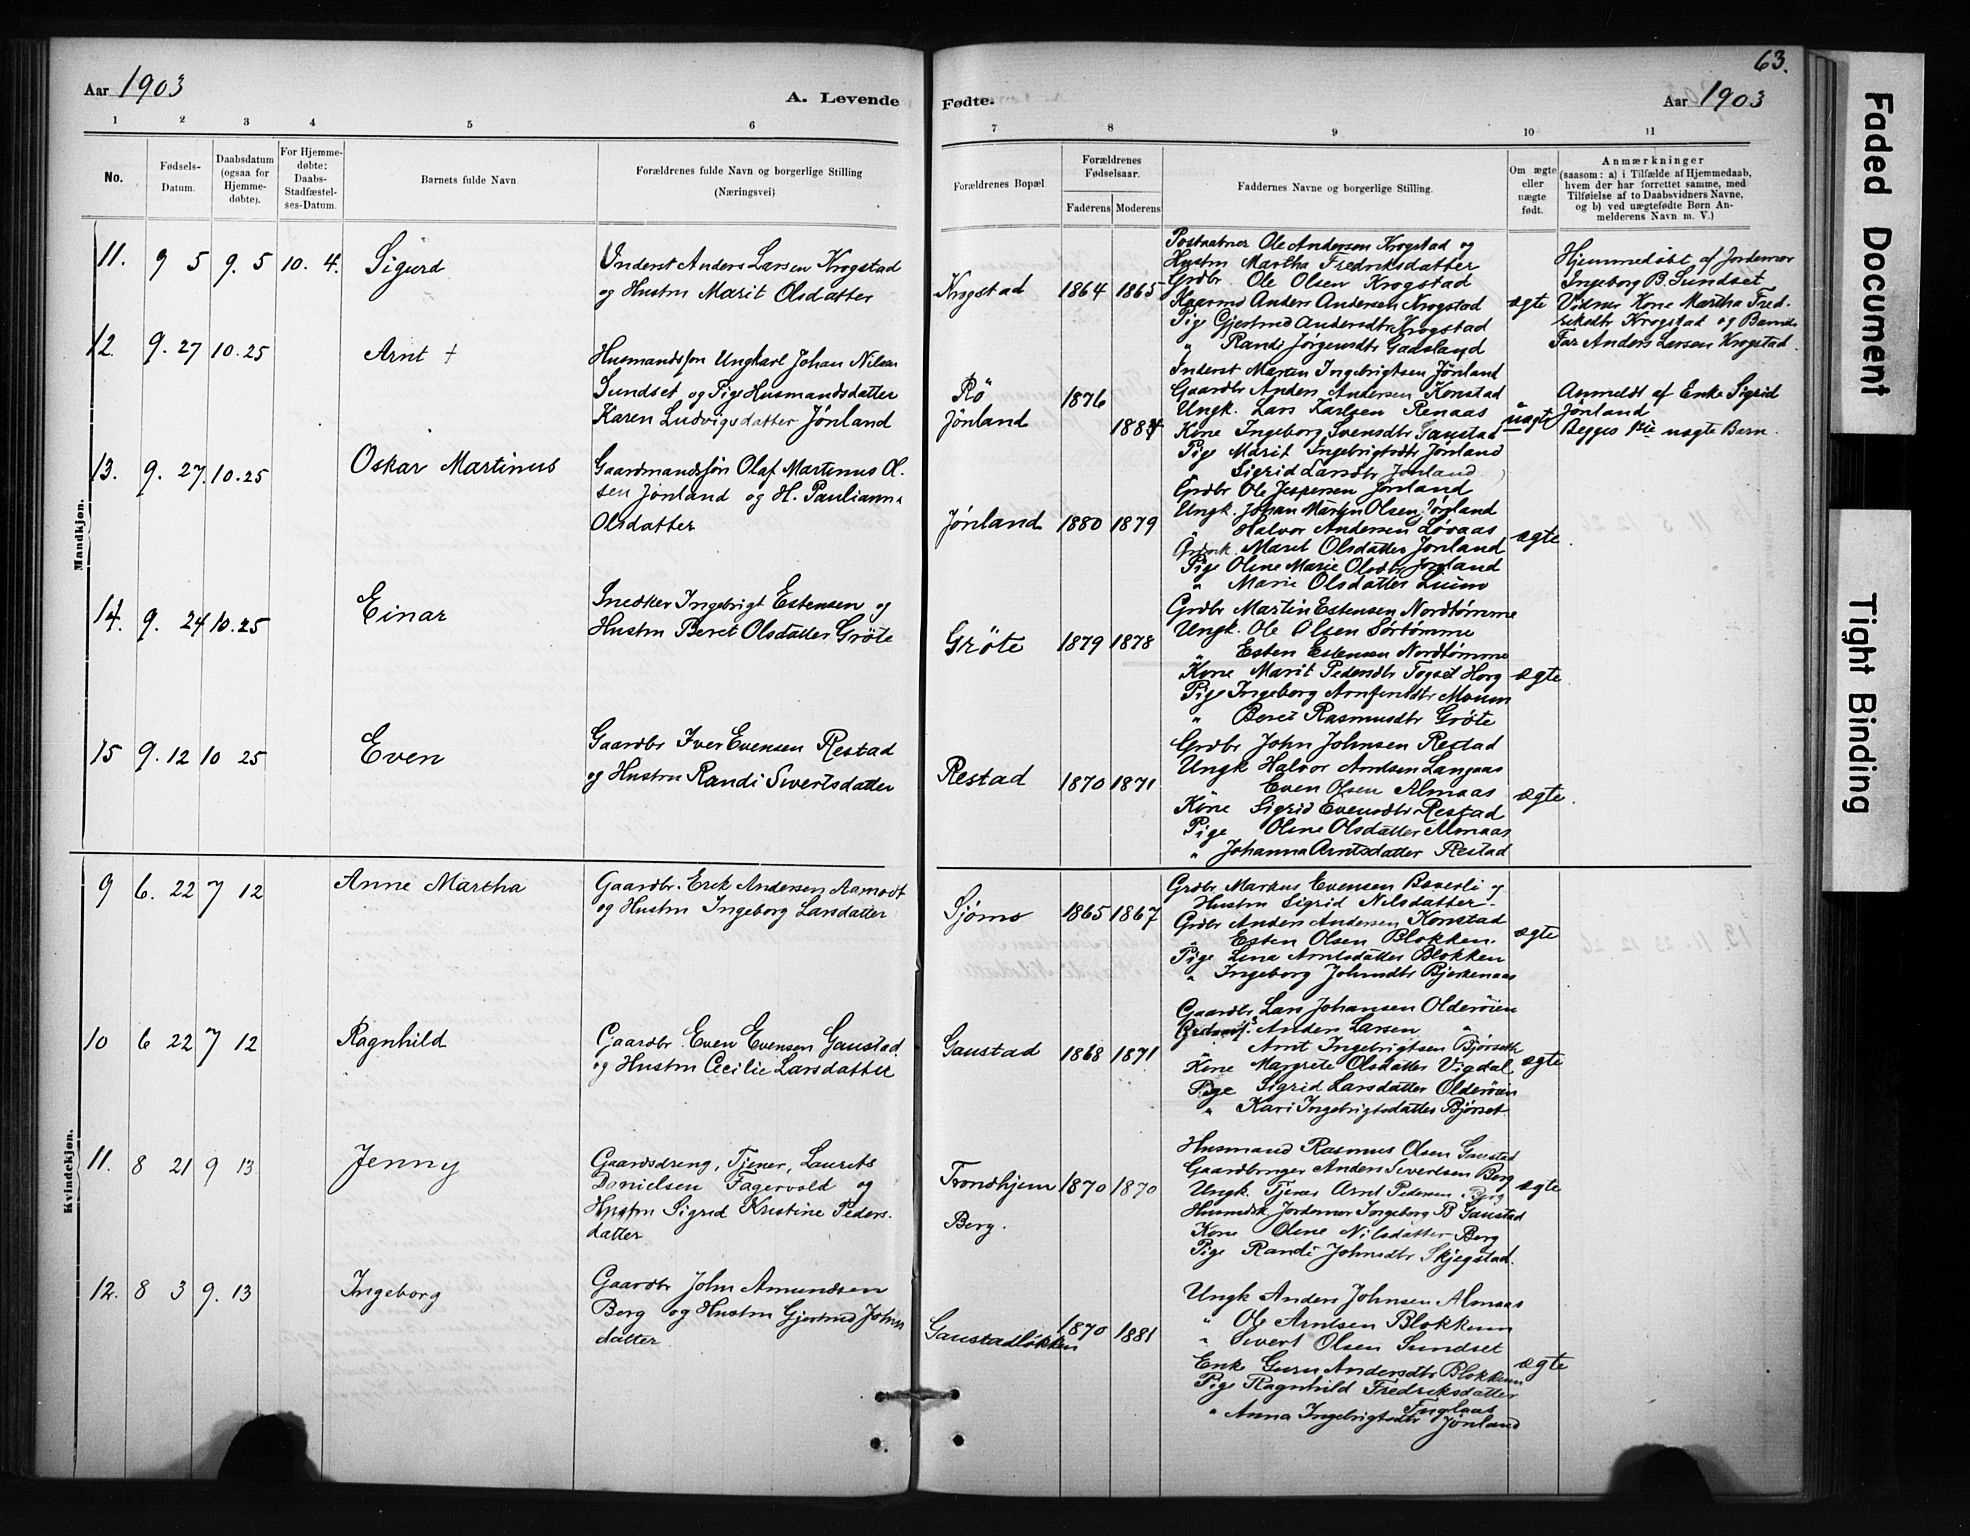 63.
Aar 1903
A. Levende
Fødte.
Aar 1903
1 2 3 4 5 6 7 8 9 10 11
No.
Fødsels-Datum.
Daabsdatum (ogsaa for Hjemme-døbte).
For Hjemme-døbte: Daabs-Stadfæstel-ses-Datum.
Barnets fulde Navn.
Forældrenes fulde Navn og borgerlige Stilling
(Næringsvei)
Forældrenes Bopæl
Forældrenes Fødselsaar.
Faderens Moderens
Faddernes Navne og borgerlige Stilling.
Om ægte eller uægte født.
Anmærkninger
(saasom: a) i Tilfælde af Hjemmedaab,
hvem der har forrettet samme, med
Tilføielse af to Daabsvidners Navne,
og b) ved uægtefødte Børn An-
melderens Navn m. V.)
Mandkjøn.
11. 9 5 9. 5 10. 4. Sigurd
Inderst Anders Larsen Krogstad
og Hustru Marit Olsdatter
Krogstad 1864 1865
Postaabner Ole Andersen Krogstad og
Hustru Martha Fredriksdatter
Grdbr Ole Olsen Krogstad
Anders Andersen Krogstad
Pige Gjertrud Andersdtr Krogstad
" Randi Jørgensdtr Gaasland
ægte
Hjemmedøbt af Jordemor
Ingeborg B. Sundset
Vidner Kone Martha Fred-
riksdtr Krogstad og Barnets
Far Anders Larsen Krogstad.
12. 9. 27 10. 25 Arnt +
Husmandssøn Ungkarl Johan Nilsen
Sundset og Pige Husmandsdatter
Karen Ludvigsdatter Jønland
Rö 1876
Jønland 1884
Inderst Martin Ingebrigtsen Jønland
Gaardbr Anders Andersen Konstad
Ungk. Lars Karlsen Renaas
Kone Ingeborg Svensdtr Gaustad
Pige Marit Ingebrigtsdtr Jønland
" Sigrid Larsdtr Jønland
uægte
Anmeldt af Enke Sigrid
Jønland
Begges 1ste uægte Barn.
13. 9. 27. 10. 25 Oskar Martinus
Gaardmandssøn Olaf Martinus Ol-
sen Jønland og H. Paulianna
Olsdatter
Jønland 1880 1879
Grdbr Ole Jespersen Jønland
Ungk. Johan Martin Olsen Jønland
" Halvor Andersen Løvaas
Marit Olsdatter Jønland
Pige Oline Marie Olsdtr Jønland
" Marie Olsdatter Luim
ægte.
14. 9. 24 10. 25 Einar
Snedker Ingebrigt Estensen og
Hustru Beret Olsdatter Gröte
Gröte 1879 1878
Grdbr Martin Estensen Nordtømme
Ungk. Ole Olsen Sørtømme
" Esten Estensen Nordtømme
Kone Marit Pedersdtr Fogset Horg
Pige Ingeborg Arnfinsdtr Moum
" Beret Rasmusdtr Gröte
ægte
15 9. 12 10 25 Even
Gaardbr Iver Evensen Restad
og Hustru Randi Sivertsdatter
Restad 1870 1871
Grdbr John Johnsen Restad
Ungk Halvor Arntsen Langaas
" Even Olsen Almaas
Kone Sigrid Evensdtr Restad
Pige Oline Olsdatter Almaas
" Johanna Arntsdatter Restad
ægte.
Kvindekjøn.
9 6. 22 7 12 Anne Martha
Gaardbr. Erik Andersen Aamodt
og Hustru Ingeborg Larsdatter
Sjømo 1865 1867
Grdbr Markus Evensen Baverli og
Hustru Sigrid Nilsdatter
Grdbr Anders Andersen Konstad
" Esten Olsen Blokken.
Pige Lina Arntsdatter Blokken
" Ingeborg Johnsdtr Bjerkenaas
ægte
10 6 22 7 12 Ragnhild
Gaardbr. Even Evensen Gaustad
og Hustru Cecilie Larsdatter
Gaustad 1868 1871
Gaardbr. Lars Johansen Olderöien
Anders Larsen "
" Arnt Ingebrigtsen Bjørseth
Kone Margrete Olsdatter Vigdal
Pige Sigrid Larsdatter Olderöien
" Kari Ingebrigtsdatter Bjørset
ægte
11. 8 21 9 13 Jenny
Gaardsdreng, Tjener, Laurits
Danielsen Fagervold og
Hustru Sigrid Kristine Peders-
datter
Trondhjem 1870 1870
Berg.
Husmand Rasmus Olsen Gaustad
Gaardbruger Anders Sivertsen Berg
Ungk. Tjener Arnt Pedersen Berg
Husmdsk. Jordemor Ingeborg B Gaustad
Kone Oline Nilsdatter Berg
Pige Randi Johnsdtr Skjegstad.
ægte
12. 8 3 9. 13 Ingeborg
Gaardbr John Amundsen
Berg og Hustru Gjertrud Johns
datter
Gaustadløkken 1870 1881
Ungk Anders Johnsen Almaas
" Ole Arntsen Blokkum
" Sivert Olsen Sundset
Enke Guru Andersdtr Blokkum
Pige Ragnhild Fredriksdatter
Fuglaas
" Anna Ingebrigtsdtr Jønland
ægte
Faded Document
Tight Binding